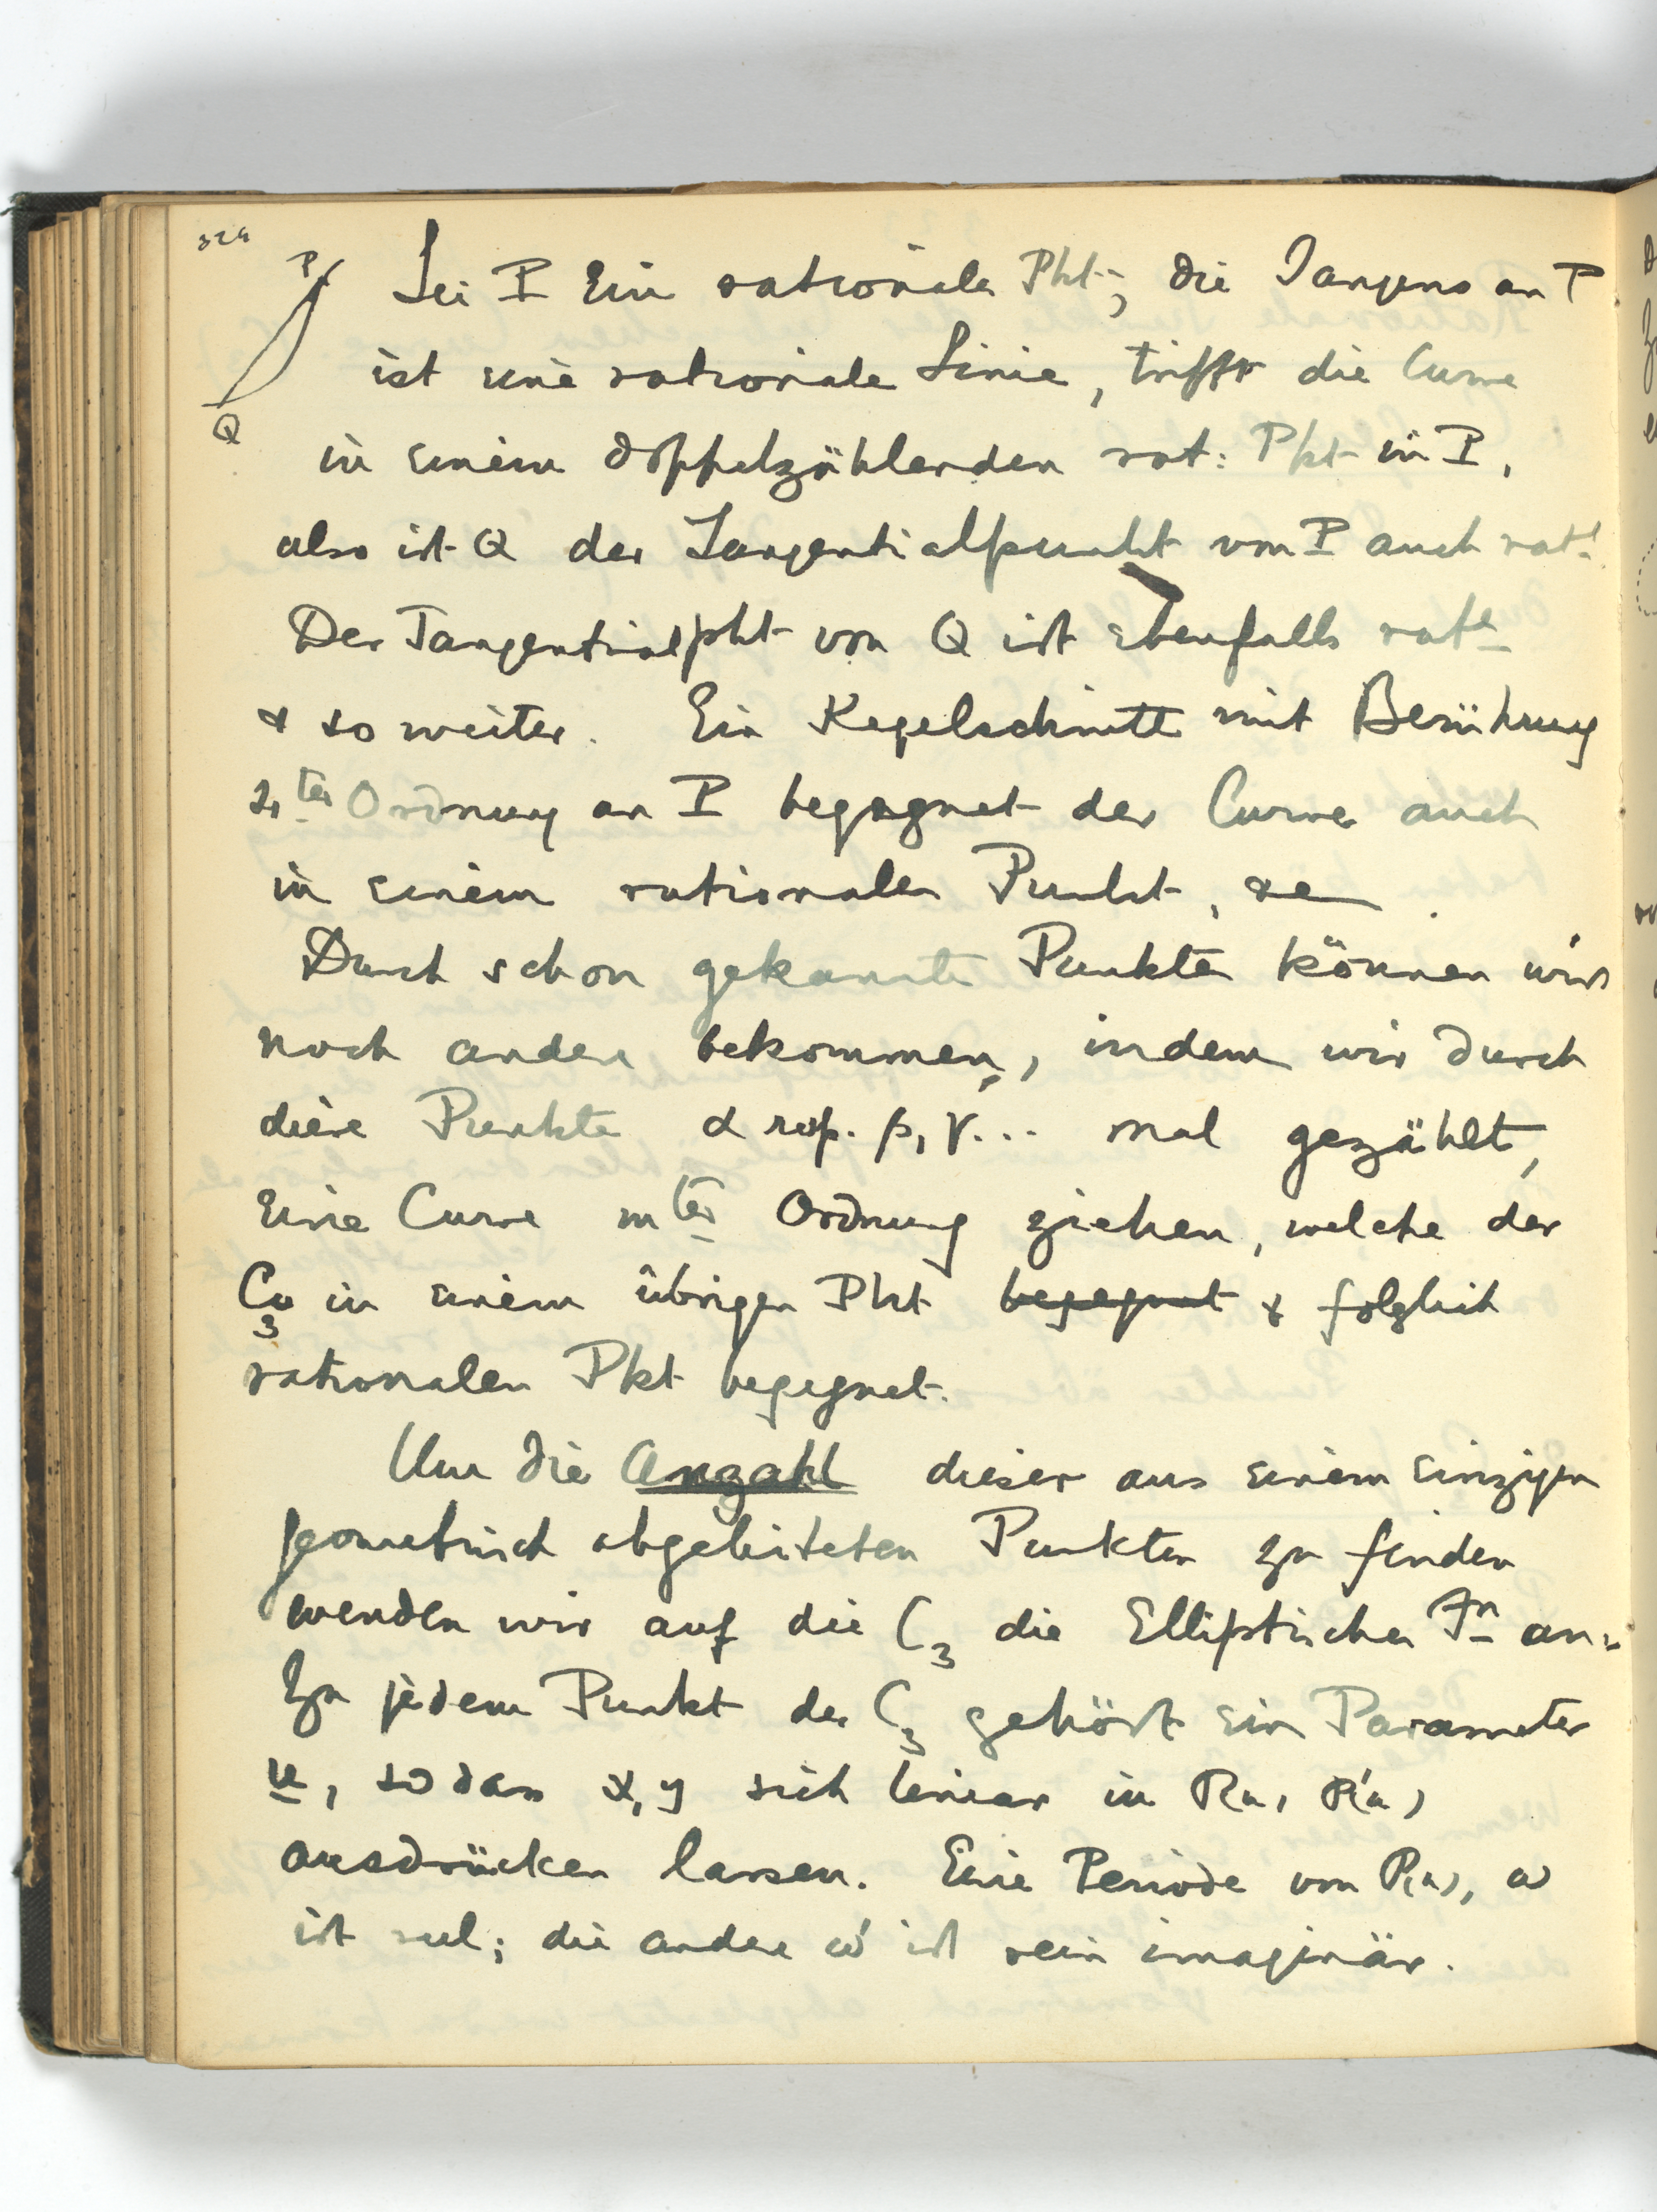 324
P
Q
Sei P Ein rationale Pkt; die Tangens an P
ist eine rationale Linie, trifft die Curve
in einem doppelzählenden rat: Pkt in P,
also ist Q der Tangentialpunkt von P auch ratl
Der Tangentialpkt von Q ist ebenfalls ratl
& so weiter. Ein Kegelschnitt mit Berührung
4ter Ordnung an P begegnet der Curve auch
in einem rationalen Punkt, &c.
Durch schon gekannte Punkte können wir
noch andere bekommen, indem wir durch
diese Punkte α resp. β, γ... mal gezählt,
Eine Curve mter Ordnung ziehen, welche der
C3 in einem übrigen Pkt begegnet & folglich
rationalen Pkt begegnet.
Um die Anzahl dieser aus einem Einzigen
geometrisch abgeleiteten Punkten zu finden
wenden wir auf die C3 die Elliptischen Fn an.
Zu jedem Punkt der C3 gehört ein Parameter
u, so dass x, y sich linear in Pu, P'u,
ausdrücken lassen. Eine Periode von P(u), ω
ist reel; die andere ω' ist rein imaginär.